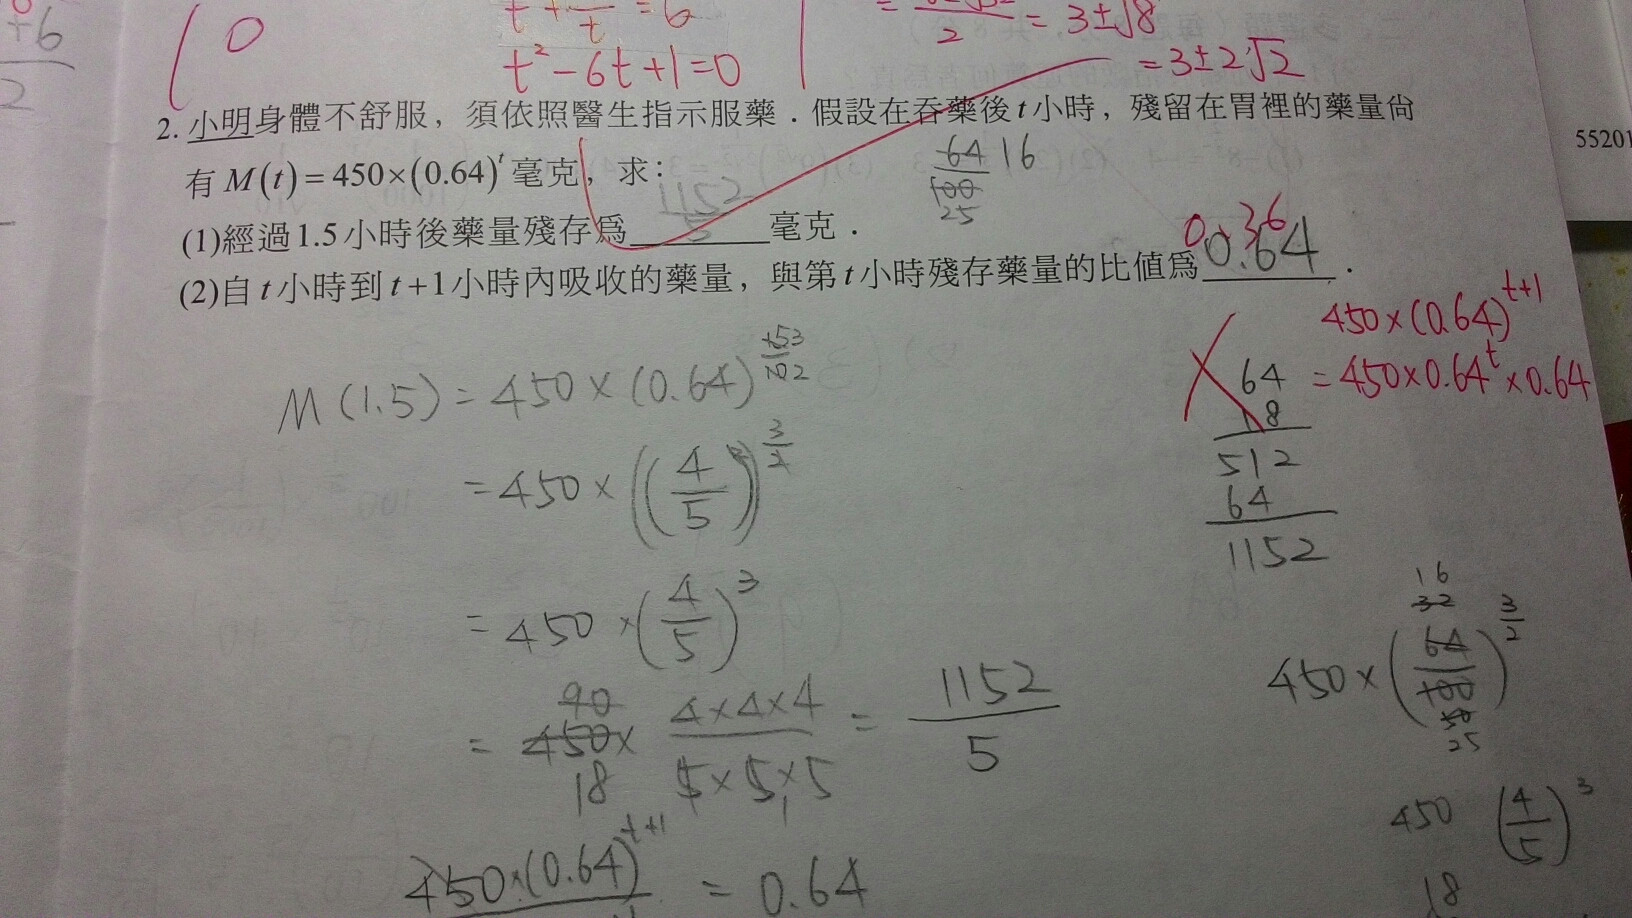 +6
2
0
t + 1/t = 6
t² - 6t + 1 = 0
2 = 3 ± √8
= 3 ± 2√2
2. 小明身體不舒服，須依照醫生指示服藥．假設在吞藥後 t 小時，殘留在胃裡的藥量尚
有 M(t) = 450×(0.64)^t 毫克，求：
64 16
100
25
55201
(1)經過1.5小時後藥量殘存為 1152/5 毫克．
(2)自 t 小時到 t+1小時內吸收的藥量，與第 t 小時殘存藥量的比值為 0.64 ．
0.36
450×(0.64)^(t+1)
= 450×0.64^t×0.64
M(1.5) = 450 × (0.64)^(153/102)
= 450 × ((4/5)²)^(3/2)
= 450 × (4/5)³
90
= 450 × (4×4×4)/(5×5×5) = 1152/5
18
1
64
18
512
64
1152
16
32
450 × (64/100)^(3/2)
50
25
450 (4/5)³
18
450×(0.64)^(t+1) = 0.64